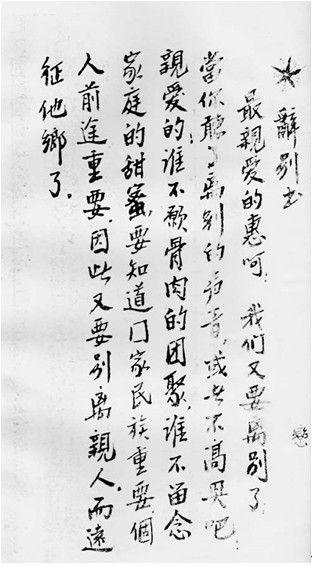 辭别书
最親爱的惠呵，我们又要离别了，
當你聽了离别的声音，或者不高兴吧，
親爱的：谁不願骨肉的团聚，谁不留念
家庭的甜蜜，要知道囗家民族重要，個
人前途重要，因此又要别离親人，而遠
征他鄉了。